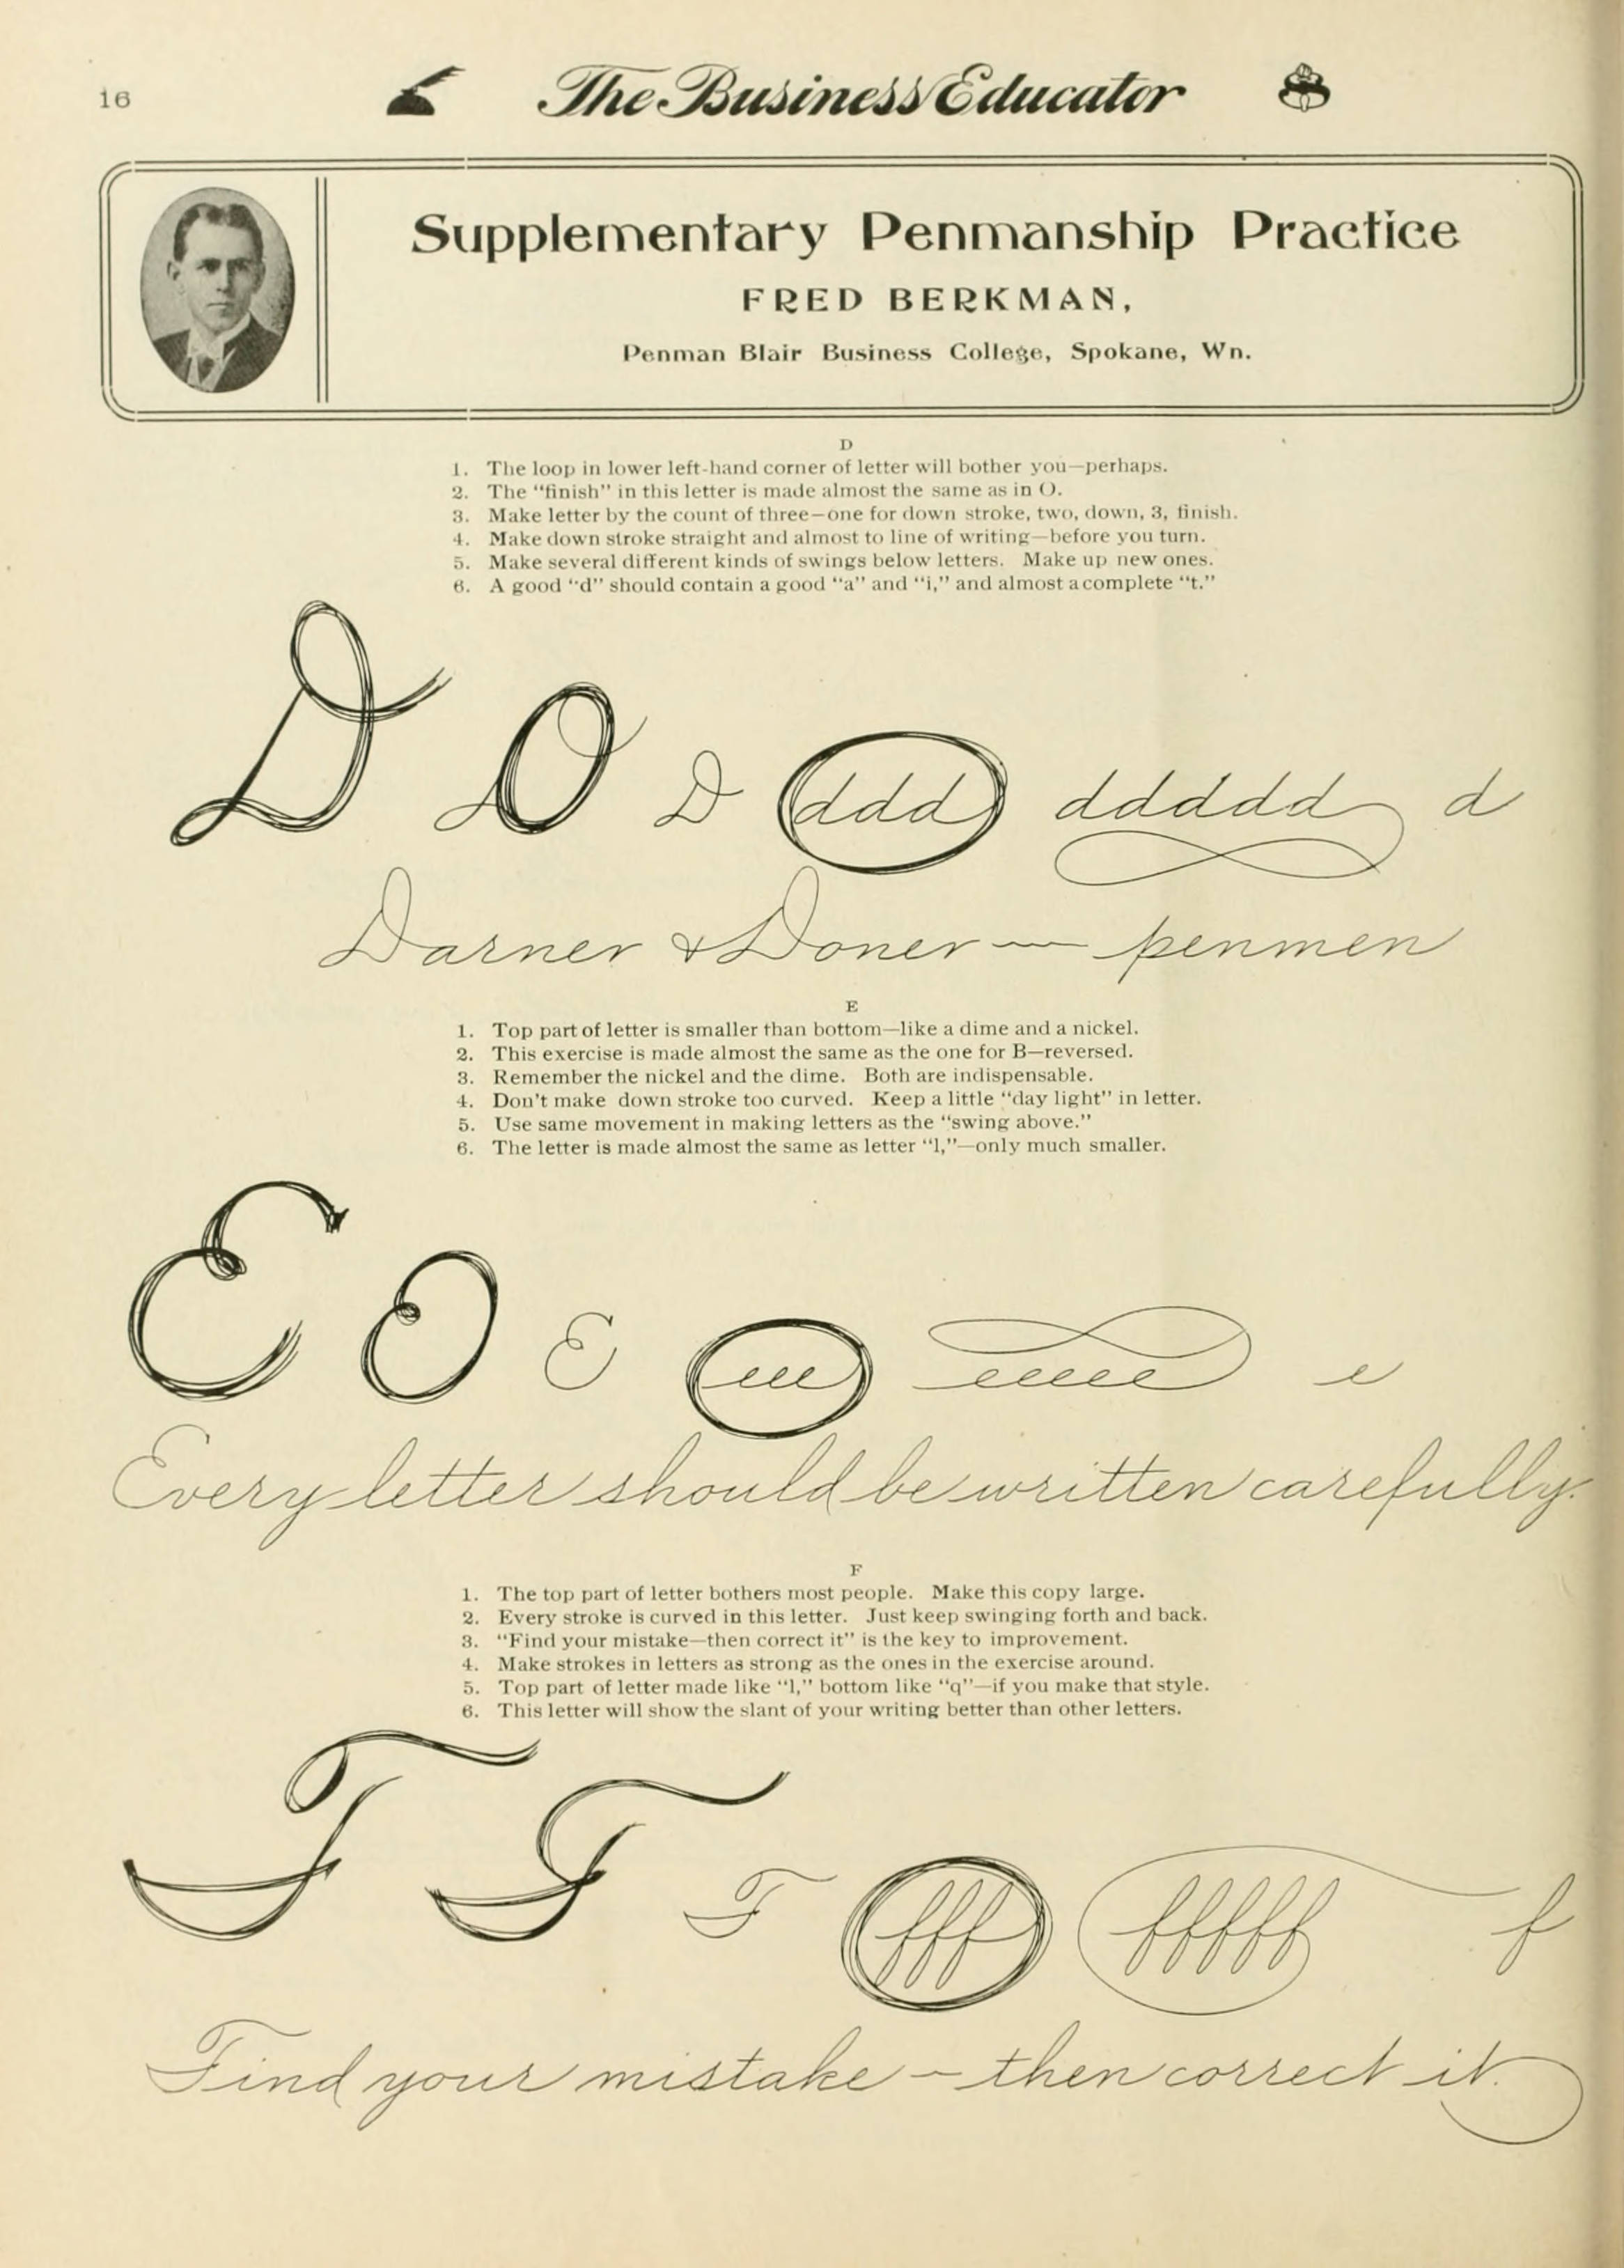 16
The Business Educator
Supplementary Penmanship Practice
FRED BERKMAN,
Penman Blair Business College, Spokane, Wn.
D
1. The loop in lower left-hand corner of letter will bother you—perhaps.
2. The "finish" in this letter is made almost the same as in O.
3. Make letter by the count of three—one for down stroke, two, down, 3, finish.
4. Make down stroke straight and almost to line of writing—before you turn.
5. Make several different kinds of swings below letters. Make up new ones.
6. A good "d" should contain a good "a" and "i," and almost a complete "t."
D D D ddd ddddd d
Darner & Doner — penmen
E
1. Top part of letter is smaller than bottom—like a dime and a nickel.
2. This exercise is made almost the same as the one for B—reversed.
3. Remember the nickel and the dime. Both are indispensable.
4. Don't make down stroke too curved. Keep a little "day light" in letter.
5. Use same movement in making letters as the "swing above."
6. The letter is made almost the same as letter "l,"—only much smaller.
E E E eee eeeee e
Every letter should be written carefully.
F
1. The top part of letter bothers most people. Make this copy large.
2. Every stroke is curved in this letter. Just keep swinging forth and back.
3. "Find your mistake—then correct it" is the key to improvement.
4. Make strokes in letters as strong as the ones in the exercise around.
5. Top part of letter made like "l," bottom like "q"—if you make that style.
6. This letter will show the slant of your writing better than other letters.
F F F fff fffff f
Find your mistake – then correct it.